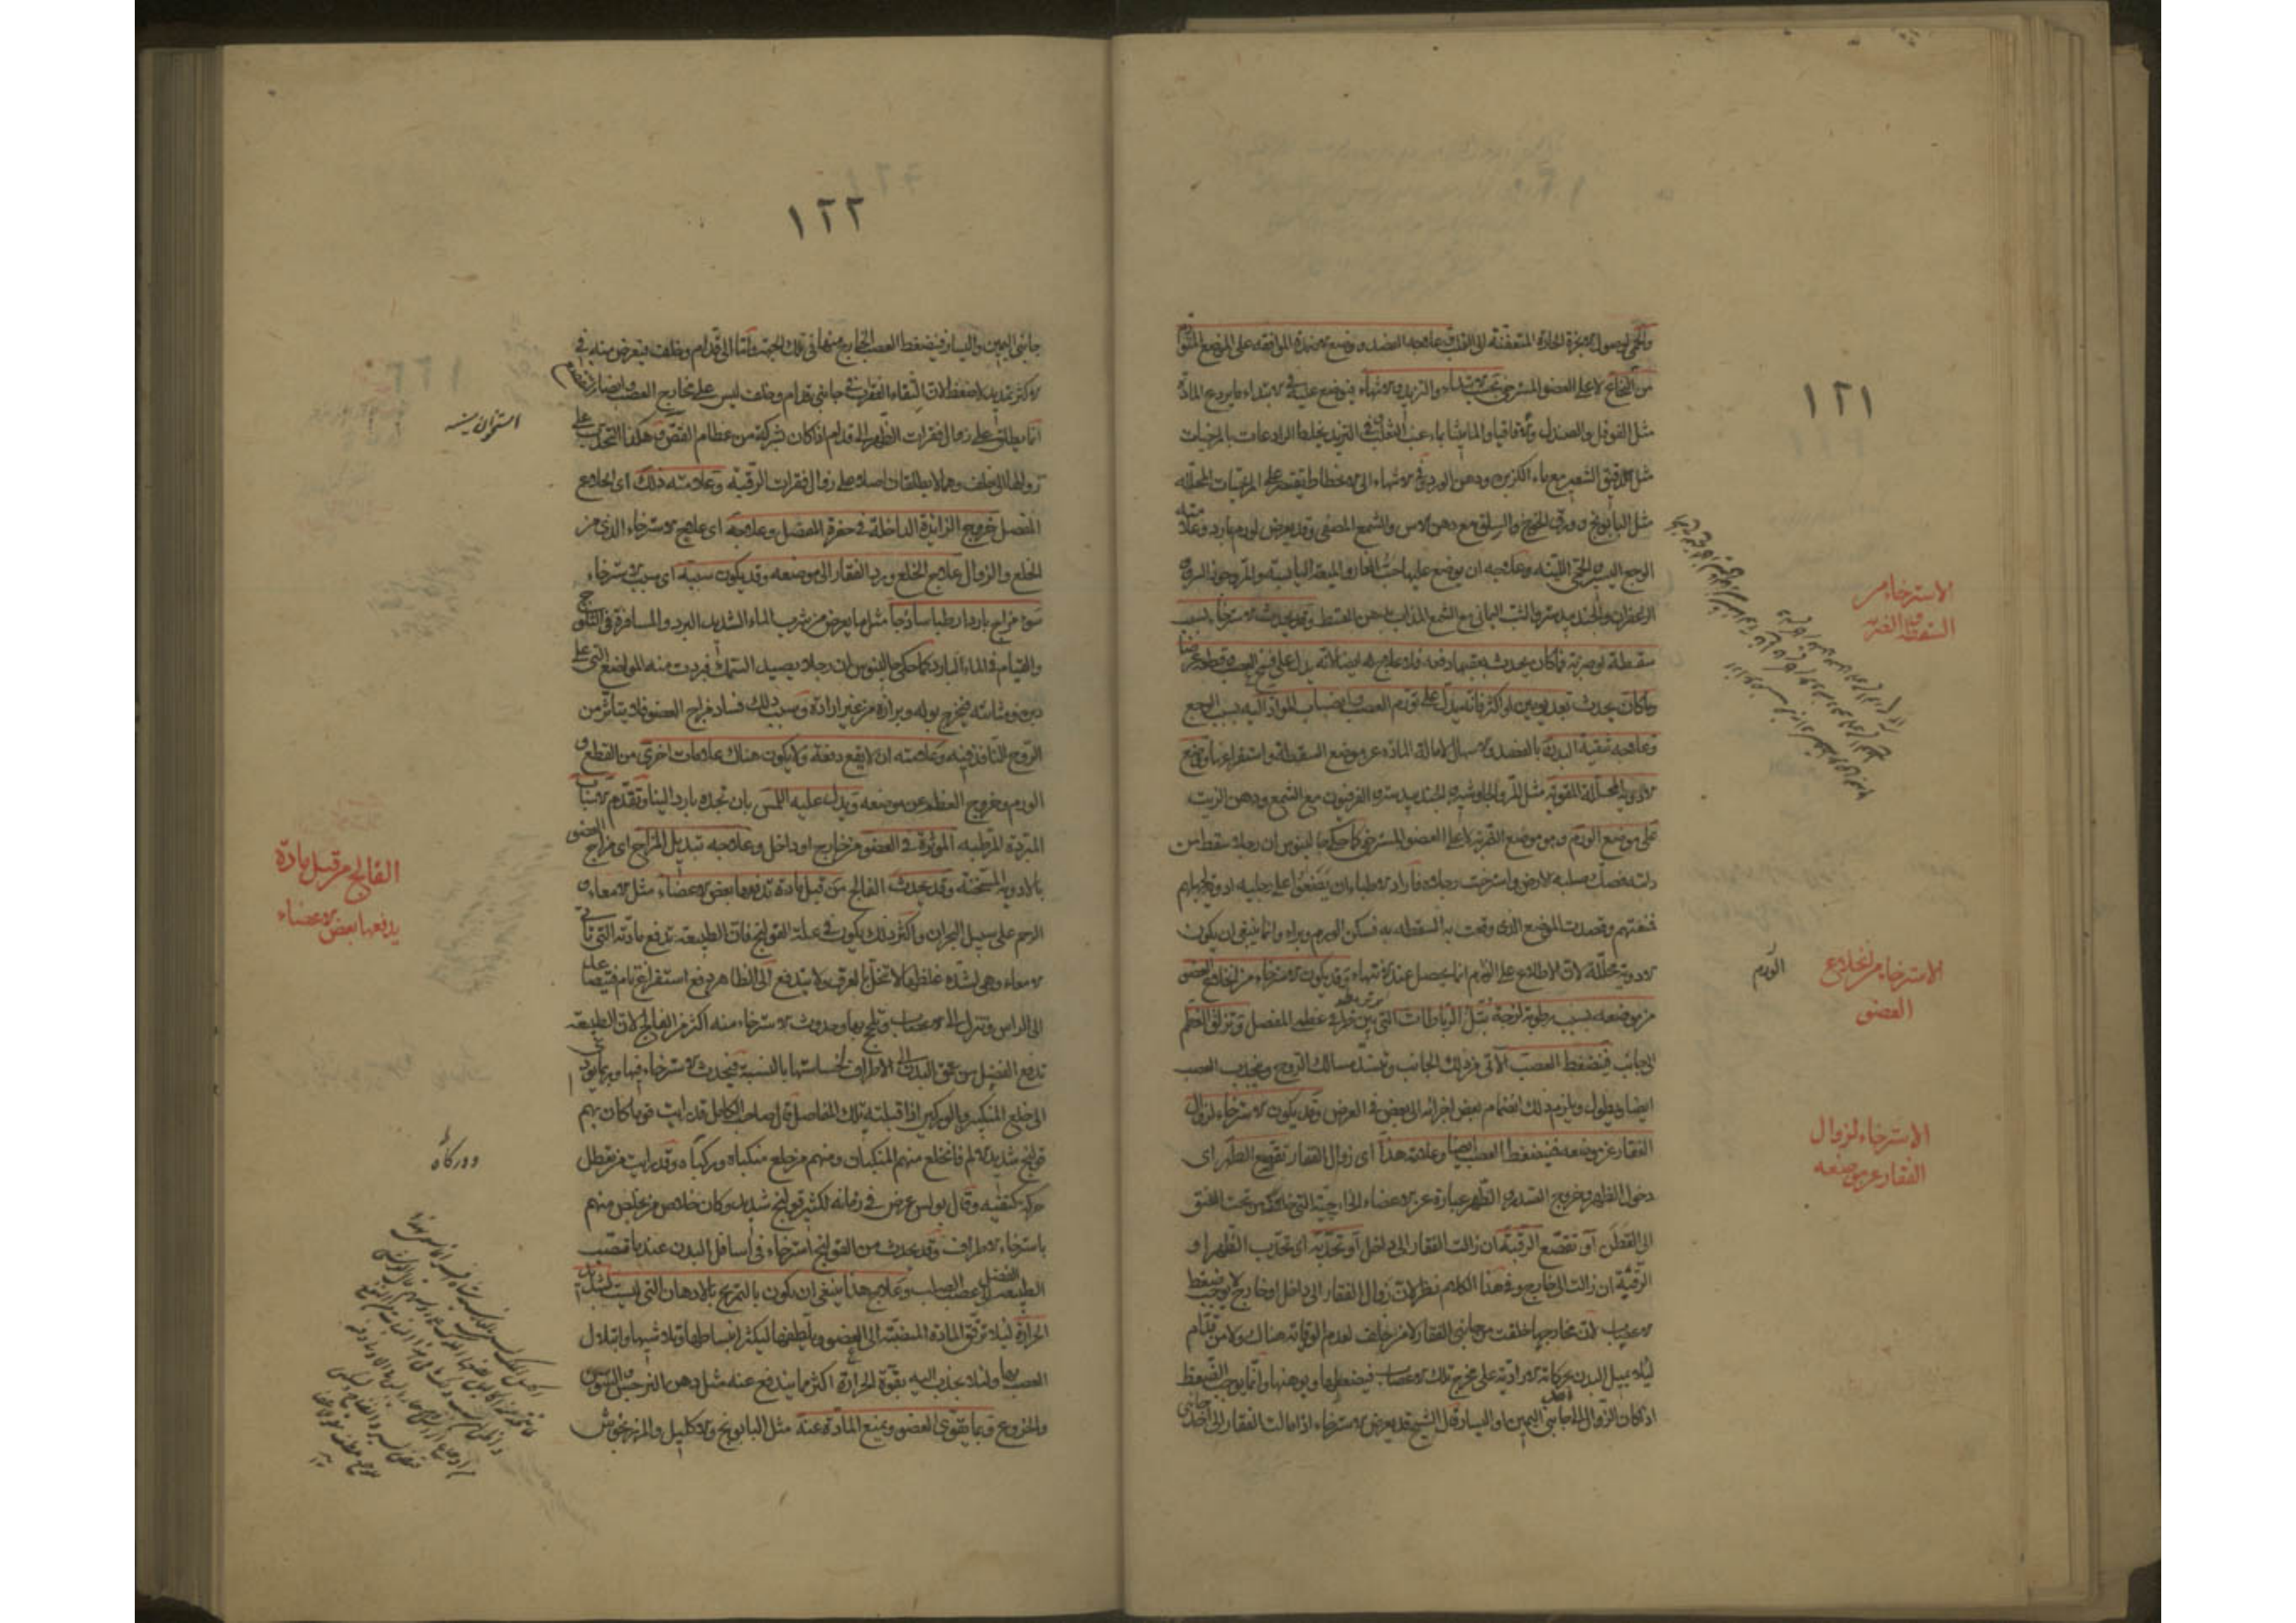 ١٢١
والحمى لوصول الابخرة الحادة المتعفنة الى القلب وعلاجه الفصد ووضع الاضمدة الموافقة على الموضع المتورم
من النخاع لا على العضو المسترخى بحسب الابتداء والتزيد والانتهاء فيوضع عليه فى الابتداء ما يردع المادة
مثل الفوفل والصندل والاقاقيا والماميثا بماء عنب الثعلب وفى التزيد يخلط الرادعات بالمرخيات
مثل دقيق الشعير مع ماء الكزبرة ودهن الورد وفى الانتهاء الى الانحطاط يقتصر على المرخيات المحللة
مثل البابونج وورق الخروع والسلق مع دهن الآس والشمع المصفى وقد يعرض لورم بارد وعلامته
الوجع اليسير والحمى اللينة وعلاجه ان يوضع عليها حب الغار والميعة اليابسة والمر
الزعفران والجندبيدستر والشب اليمانى مع الشمع المذاب بدهن القسط وقد يحدث الاسترخاء بسبب
سقطة او ضربة فما كان يحدث بعقبها دفعة فلا علاج له ايضا لانه يدل على فسخ العصب وقطعه عرضا
وما كان يحدث بعد يومين او اكثر فانه يدل على تورم العصب وانصباب المواد اليه بسبب الوجع
وعلاجه تنقية البدن بالفصد والاسهال لامالة المادة عن موضع السقطة واستفراغها ووضع
الادوية المحللة المقوية مثل المر والجاوشير والجندبيدستر والفرفيون مع الشمع ودهن الزيت
على موضع الورم وهو موضع الضربة لا على العضو المسترخى كما حكى جالينوس ان رجلا سقط من
دابته فصك صلبه الارض واسترخت رجلاه فاراد الاطباء ان يضعوا على رجليه ادوية
فمنعتهم وقصدت الموضع الذى وقعت به السقطة به فسكن الورم وبرا وانما ينبغى ان يكون
الادوية محللة لان الاطلاع على الورم انما يحصل عند الانتهاء وقد يكون الاسترخاء من انخلاع العضو
من موضعه بسبب رطوبة لزجة تبل الرباطات التى بين طرفى عظم المفصل وتزلق العظم
الى جانب فينضغط العصب الآتى من ذلك الجانب وتنسد مسالك الروح وينجذب العصب
ايضا ويطول ويلزم ذلك انضمام بعض اجزائه الى بعض فى العرض وقد يكون الاسترخاء لزوال
الفقار عن موضعه فينضغط العصب ايضا وعلامة هذا اى زوال الفقار تقصع الظهر اى
دخول الظهر وخروج الصدر والظهر عبارة عن الاعضاء الخارجية التى من تحت العنق
الى القطن او تقصع الرقبة ان زالت الفقار الى داخل او تحدبه اى تحدب الظهر او
الرقبة ان زالت الى خارج وفى هذا الكلام نظر لان زوال الفقار الى داخل او خارج لا يوجب ضغط
الاعصاب لان مخارجها خلقت من جانبى الفقار لا من خلف لعدم الوقاية هناك ولا من قدام
لئلا يميل البدن بحركاته الارادية على مخرج تلك الاعصاب فيضغطها ويوهنها وانما يوجب الضغط
اذ كان الزوال الى احد جانبى اليمين او اليسار قال الشيخ قد يعرض الاسترخاء اذا مالت الفقار الى احد جانبى
الاسترخاء من
السقطة والضربة
الاسترخاء من انخلاع
العضو
الورم
الاسترخاء لزوال
الفقار عن موضعه
١٢٢
جانبى اليمين واليسار فيضغط العصب الخارج منها فى تلك الجهة واما الى قدام وخلف فيعرض منه فى
الاكثر تمديد لا ضغط لان التقاء الفقرات فى جانبى قدام وخلف ليس على مخارج العصب وايضا
انما يطلق على زوال فقرات الظهر الى قدام اذا كان بشركة من عظام القص وهكذا التحدب على
زوالها الى خلف وهما لا يطلقان اصلا على زوال فقرات الرقبة وعلامة ذلك اى انخلاع
المفصل خروج الزائدة الداخلة فى حفرة المفصل وعلاجه اى علاج الاسترخاء الذى من
الخلع والزوال علاج الخلع ويرد الفقار الى موضعه وقد يكون سببه اى سبب الاسترخاء
سوء مزاج بارد او رطب ساذجا مثل ما يعرض من شرب الماء الشديد البرد والمسافرة فى الثلوج
والقيام فى الماء البارد كما حكى جالينوس ان رجلا يصيد السمك فبردت منه المواضع التى على
دبره ومثانته فيخرج بوله وبرازه من غير ارادة وسبب ذلك فساد مزاج العضو فلا يتأثر من
الروح النافذ فيه وعلامته ان لا يقع دفعة ولا يكون هناك علامات اخرى من القطع و
الورم وخروج العظم عن موضعه ويدل عليه اللمس بان تجده باردا لينا وتقدم الاسباب
المبردة المرطبة المؤثرة فى العضو من خارج او داخل وعلاجه تبديل المزاج اى مزاج العضو
بالادوية المسخنة وقد يحدث الفالج من قبل مادة تدفعها بعض الاعضاء مثل الامعاء و
الرحم على سبيل البحران واكثر ذلك يكون فى علة القولنج فان الطبيعة تدفع مادته التى تأتى
الامعاء وهى لشدة غلظها لا تتحلل بالعرق ولا يندفع الى الظاهر دفع استفراغ تام
الى الراس وتنزل الى الاعصاب وتلحج بها وحدوث الاسترخاء منه اكثر من الفالج لان الطبيعة
تدفع الفضل من عمق البدن الى الاطراف لخساستها بالنسبة فيحدث الاسترخاء فيها وربما يؤدى
الى خلع المنكبين والوركين اذا قبلته تلك المفاصل قال صاحب الكامل قد رايت قوما كان بهم
قولنج شديد الالم فانخلع منهم المنكبان ومنهم من خلع منكباه وركباه وقد رايت من تعطل
حركة كتفيه وقال بولس عرض فى زمانه لكثير قولنج شديد وكان خلاص من يخلص منهم
باسترخاء الاطراف وقد يحدث من القولنج استرخاء فى اسافل البدن عند ما تصب
الطبيعة الفضل الى عصب الصلب وعلاج هذا ينبغى ان يكون بالتمريخ بالادهان التى ليست بشديدة
الحرارة لئلا ترقق المادة المنصبة الى العضو ويلطفها ليكثر انبساطها وتلاشيها وابتلال
العصب بها ولئلا يجذب اليه بقوة الحرارة اكثر مما يندفع عنه مثل دهن النرجس والسوسن
والخروع وبما يقوى العضو ويمنع المادة عنه مثل البابونج والاكليل والمرزنجوش
استخوان سينه
الفالج من قبل مادة
يدفعها بعض الاعضاء
ووركاه